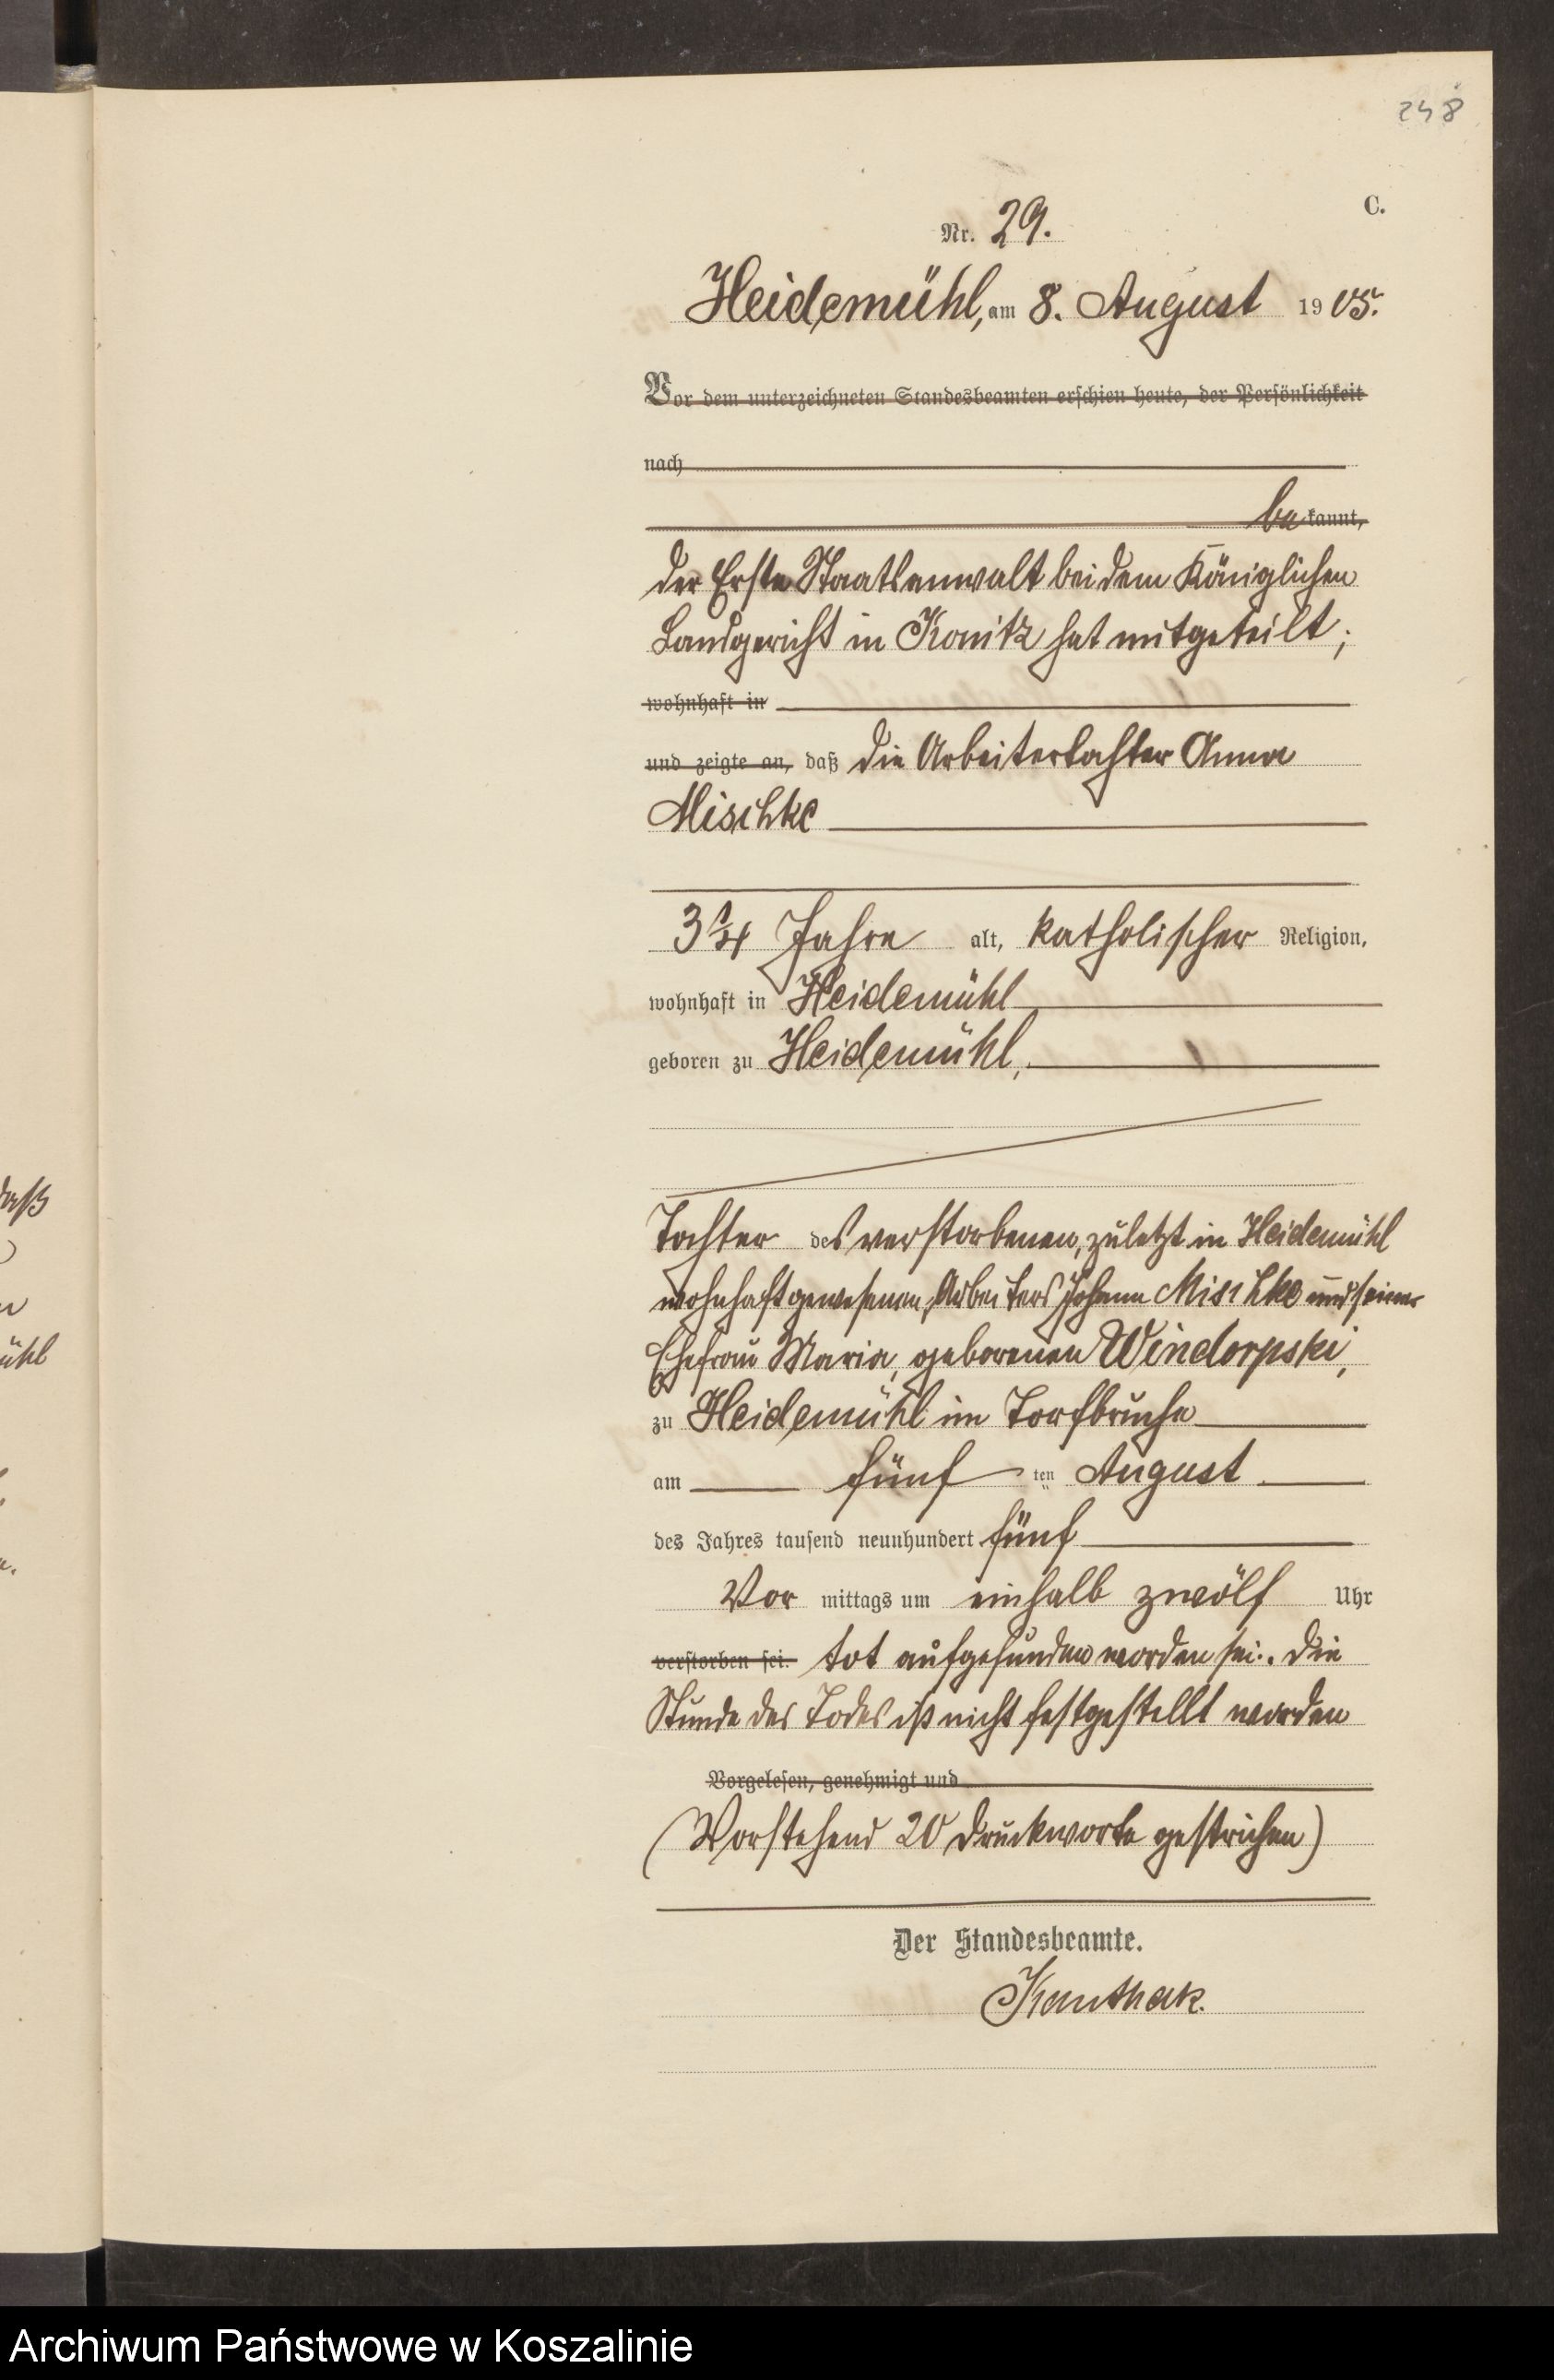 248
C.
Nr. 29.
Heidemühl, am 8. August 1905.
Vor dem unterzeichneten Standesbeamten erschien heute, der Persönlichkeit
nach
be kannt,
der Erste Staatsanwalt bei dem Königlichen
Landgericht in Konitz hat mitgeteilt;
wohnhaft in
und zeigte an, daß die Arbeitertochter Anna
Mischke
3 1/4 Jahre alt, katholischer Religion,
wohnhaft in Heidemühl
geboren zu Heidemühl,
Tochter des verstorbenen, zuletzt in Heidemühl
wohnhaft gewesenen, Arbeiters Johann Mischke und seiner
Ehefrau Maria, geborenen Windorpski,
zu Heidemühl im Torfbruche
am fünf ten August
des Jahres tausend neunhundert fünf
Vor mittags um einhalb zwölf Uhr
verstorben sei. tot aufgefunden worden sei. Die
Stunde des Todes ist nicht festgestellt worden
Vorgelesen, genehmigt und
(Vorstehend 20 Druckworte gestrichen)
Der Standesbeamte.
Kanthak.
daß
ühl
Archiwum Państwowe w Koszalinie